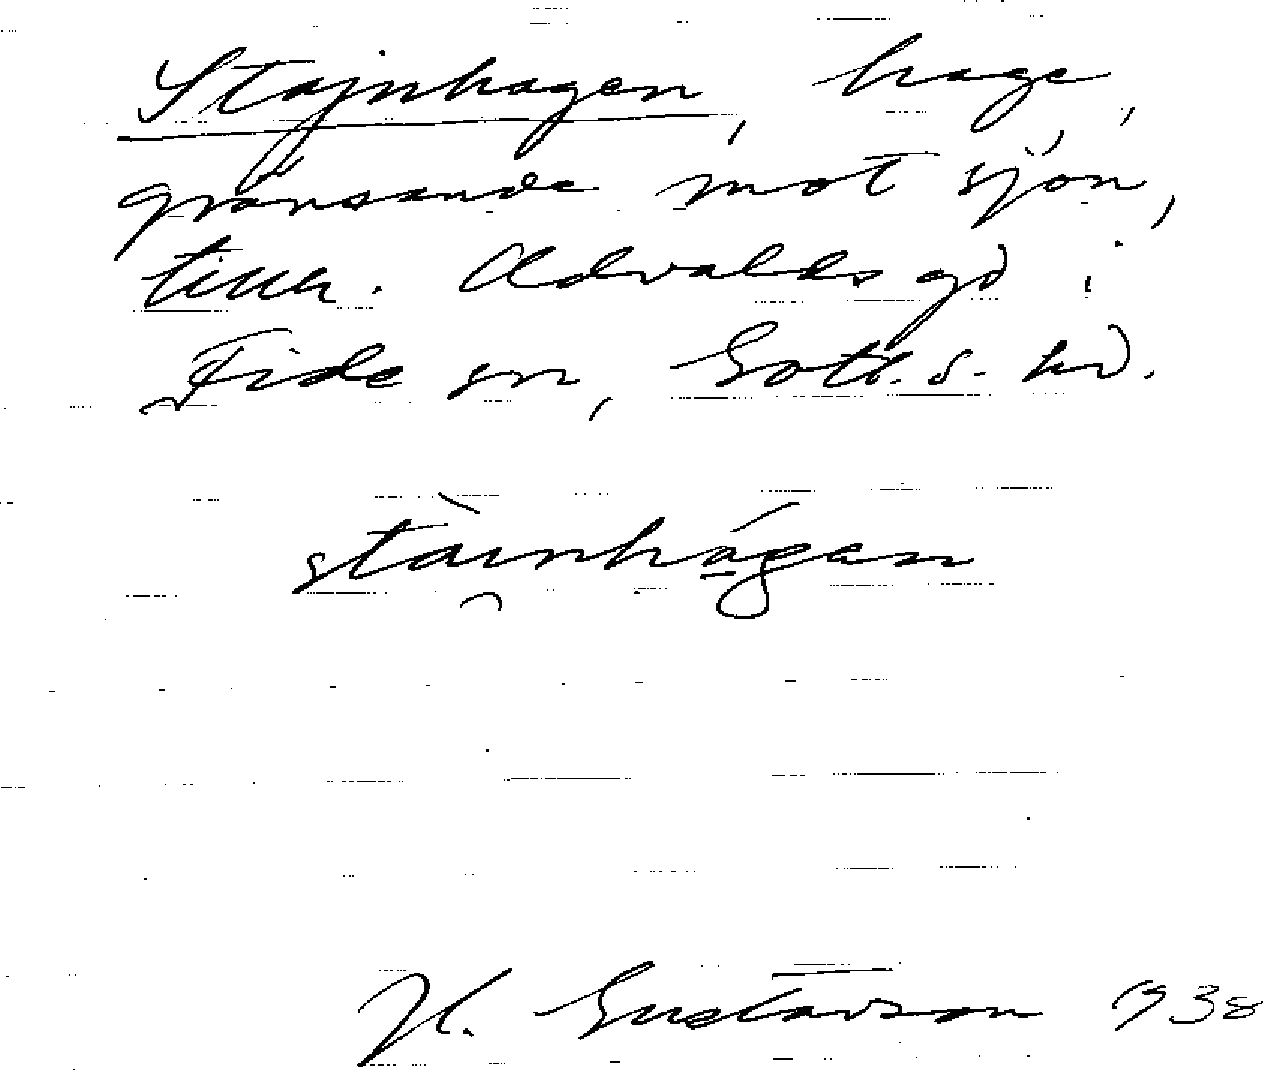 Stajnhagen, hage,
gränsande mot sjön,
tillh. Odvalds gd i
Fide sn, Gotl. s. hd.
stàinhágen
H. Gustavson 1938